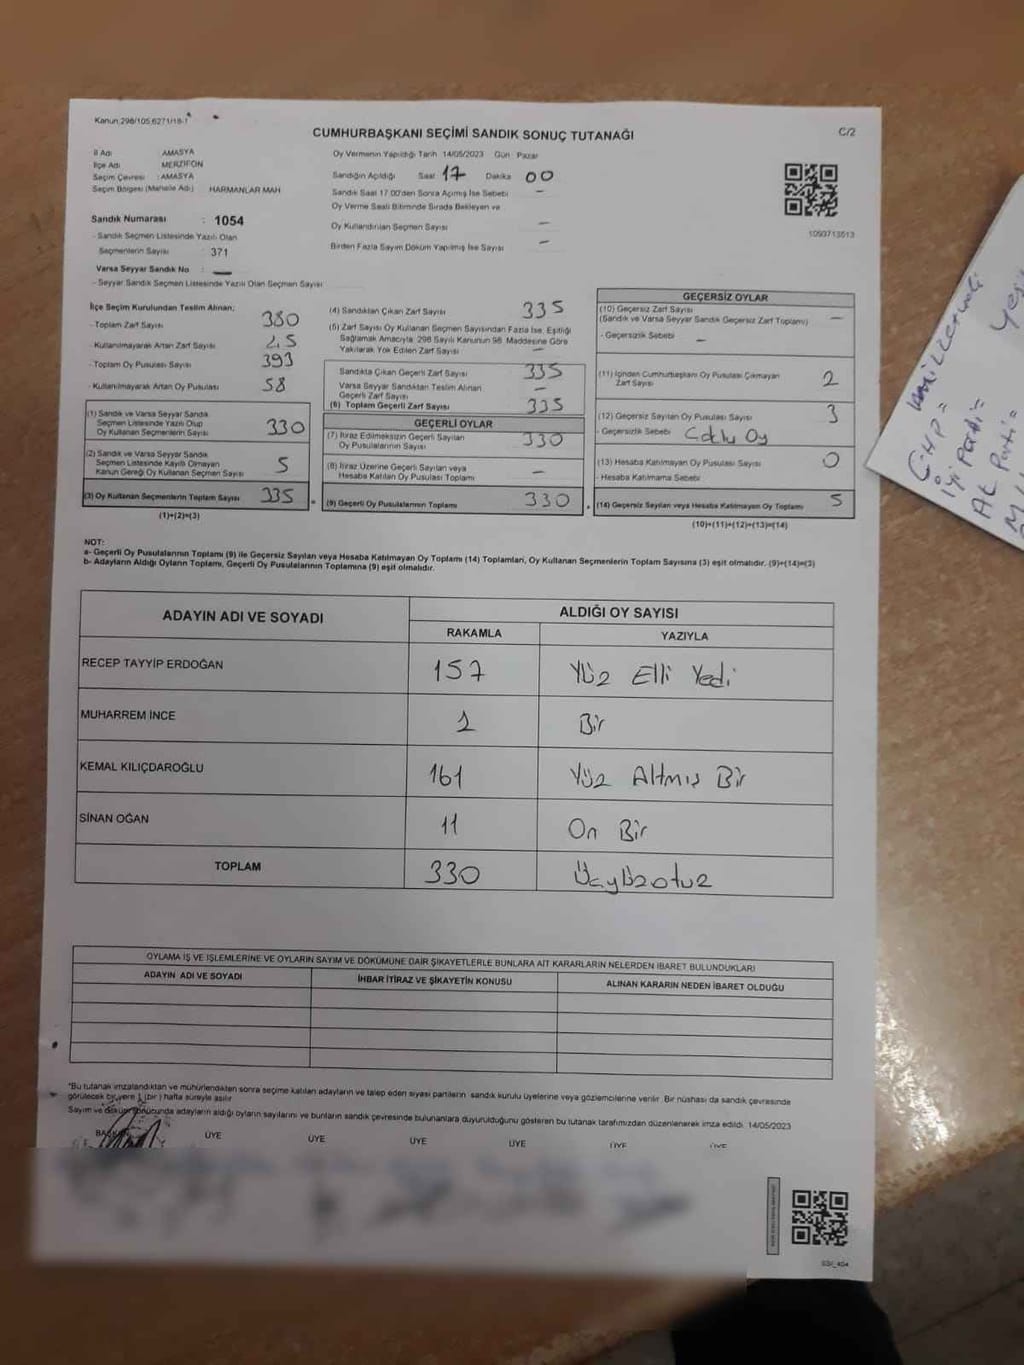 Kanun:298/105,6271/18-1
CUMHURBAŞKANI SEÇİMİ SANDIK SONUÇ TUTANAĞI
C/2
İl Adı : AMASYA
İlçe Adı : MERZİFON
Seçim Çevresi : AMASYA
Seçim Bölgesi (Mahalle Adı) HARMANLAR MAH
Sandık Numarası : 1054
- Sandık Seçmen Listesinde Yazılı Olan
Seçmenlerin Sayısı : 371
Varsa Seyyar Sandık No : —
- Seyyar Sandık Seçmen Listesinde Yazılı Olan Seçmen Sayısı
Oy Vermenin Yapıldığı Tarih 14/05/2023 Gün Pazar
Sandığın Açıldığı Saat 17 Dakika 00
Sandık Saat 17.00'den Sonra Açılmış İse Sebebi —
Oy Verme Saati Bitiminde Sırada Bekleyen ve
Oy Kullandırılan Seçmen Sayısı —
Birden Fazla Sayım Döküm Yapılmış İse Sayısı —
1093713513
İlçe Seçim Kurulundan Teslim Alınan;
- Toplam Zarf Sayısı 380
- Kullanılmayarak Artan Zarf Sayısı 45
- Toplam Oy Pusulası Sayısı 393
- Kullanılmayarak Artan Oy Pusulası 58
(1) Sandık ve Varsa Seyyar Sandık
Seçmen Listesinde Yazılı Olup
Oy Kullanan Seçmenlerin Sayısı 330
(2) Sandık ve Varsa Seyyar Sandık
Seçmen Listesinde Kayıtlı Olmayan
Kanun Gereği Oy Kullanan Seçmen Sayısı 5
(3) Oy Kullanan Seçmenlerin Toplam Sayısı 335
(1)+(2)=(3)
(4) Sandıktan Çıkan Zarf Sayısı 335
(5) Zarf Sayısı Oy Kullanan Seçmen Sayısından Fazla İse, Eşitliği
Sağlamak Amacıyla; 298 Sayılı Kanunun 98. Maddesine Göre
Yakılarak Yok Edilen Zarf Sayısı —
Sandıkta Çıkan Geçerli Zarf Sayısı 335
Varsa Seyyar Sandıktan Teslim Alınan
Geçerli Zarf Sayısı —
(6) Toplam Geçerli Zarf Sayısı 335
GEÇERLİ OYLAR
(7) İtiraz Edilmeksizin Geçerli Sayılan
Oy Pusulalarının Sayısı 330
(8) İtiraz Üzerine Geçerli Sayılan veya
Hesaba Katılan Oy Pusulaları Toplamı —
(9) Geçerli Oy Pusulalarının Toplamı 330
GEÇERSİZ OYLAR
(10) Geçersiz Zarf Sayısı
(Sandık ve Varsa Seyyar Sandık Geçersiz Zarf Toplamı) —
- Geçersizlik Sebebi —
(11) İçinden Cumhurbaşkanı Oy Pusulası Çıkmayan
Zarf Sayısı 2
(12) Geçersiz Sayılan Oy Pusulası Sayısı 3
- Geçersizlik Sebebi Çoklu Oy
(13) Hesaba Katılmayan Oy Pusulası Sayısı 0
- Hesaba Katılmama Sebebi
(14) Geçersiz Sayılan veya Hesaba Katılmayan Oy Toplamı 5
(10)+(11)+(12)+(13)=(14)
NOT:
a- Geçerli Oy Pusulalarının Toplamı (9) ile Geçersiz Sayılan veya Hesaba Katılmayan Oy Toplamı (14) Toplamları, Oy Kullanan Seçmenlerin Toplam Sayısına (3) eşit olmalıdır. (9)+(14)=(3)
b- Adayların Aldığı Oyların Toplamı, Geçerli Oy Pusulalarının Toplamına (9) eşit olmalıdır.
ADAYIN ADI VE SOYADI
ALDIĞI OY SAYISI
RAKAMLA YAZIYLA
RECEP TAYYİP ERDOĞAN 157 Yüz Elli Yedi
MUHARREM İNCE 1 Bir
KEMAL KILIÇDAROĞLU 161 Yüz Altmış Bir
SİNAN OĞAN 11 On Bir
TOPLAM 330 Üçyüzotuz
OYLAMA İŞ VE İŞLEMLERİNE VE OYLARIN SAYIM VE DÖKÜMÜNE DAİR ŞİKAYETLERLE BUNLARA AİT KARARLARIN NELERDEN İBARET BULUNDUKLARI
ADAYIN ADI VE SOYADI İHBAR İTİRAZ VE ŞİKAYETİN KONUSU ALINAN KARARIN NEDEN İBARET OLDUĞU
*Bu tutanak imzalandıktan ve mühürlendikten sonra seçime katılan adayların ve talep eden siyasi partilerin sandık kurulu üyelerine veya gözlemcilerine verilir. Bir nüshası da sandık çevresinde
görülecek bir yere 1 (bir) hafta süreyle asılır.
Sayım ve döküm sonucunda adayların aldığı oyların sayılarını ve bunların sandık çevresinde bulunanlara duyurulduğunu gösteren bu tutanak tarafımızdan düzenlenerek imza edildi. 14/05/2023
BAŞKAN ÜYE ÜYE ÜYE ÜYE ÜYE ÜYE
CHP=
İyi Parti=
AK Parti=